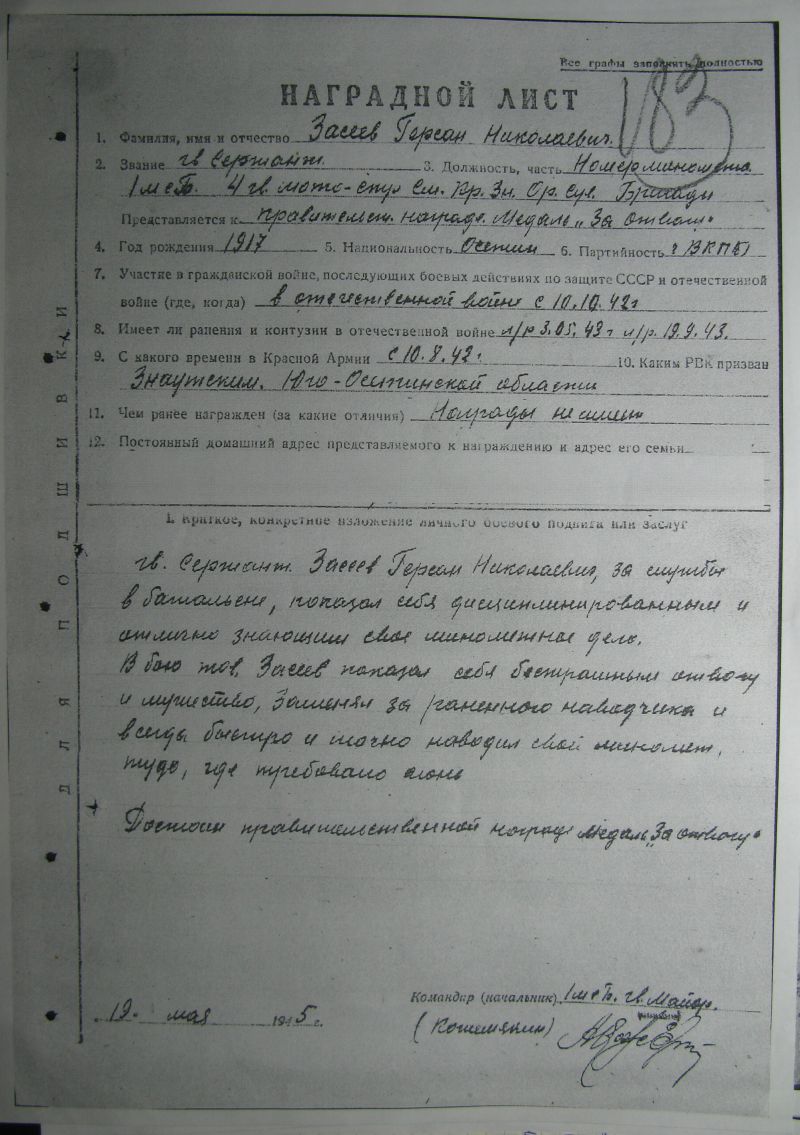 Все графы заполнять полностью
183
НАГРАДНОЙ ЛИСТ
1. Фамилия, имя и отчество Засеев Герсан Николаевич.
2. Звание гв. Сержант. 3. Должность, часть Номер миномета
1 мсб. 4 гв. мото-стрл См. Кр. Зн. Ор. Сув. Бригады
Представляется к правительст. награде. Медаль „За отвагу"
4. Год рождения 1917 5. Национальность Осетин 6. Партийность ВКП(б)
7. Участие в гражданской войне, последующих боевых действиях по защите СССР и отечественной
войне (где, когда) в отечественной войне с 10.10.42 г
8. Имеет ли ранения и контузии в отечественной войне л/р 3.05.43 г л/р. 19.9.43.
9. С какого времени в Красной Армии с 10.8.42 г. 10. Каким РВК призван
Знаурским. Юго-Осетинской области
11. Чем ранее награжден (за какие отличия) Награды не имеет
12. Постоянный домашний адрес представляемого к награждению и адрес его семьи
ДЛЯ ПОДШИВКИ
I. Краткое, конкретное изложение личного боевого подвига или заслуг
гв. Сержант. Засеев Герсан Николаевич, за службы
в батальене, показал себя дисциплинированным и
отлично знающим свое минометное дело.
В бою тов. Засеев показал себя бестрашным отвагу
и мужество, Заменял за раненного наводчика и
всегда быстро и точно наводил свой миномет,
туда, где требовало огонь
Достоин правительственной награде Медаль „За отвагу"
19. мая 1945 г.
Командир (начальник) 1 мсб. гв. Майор.
(Кожемякин)